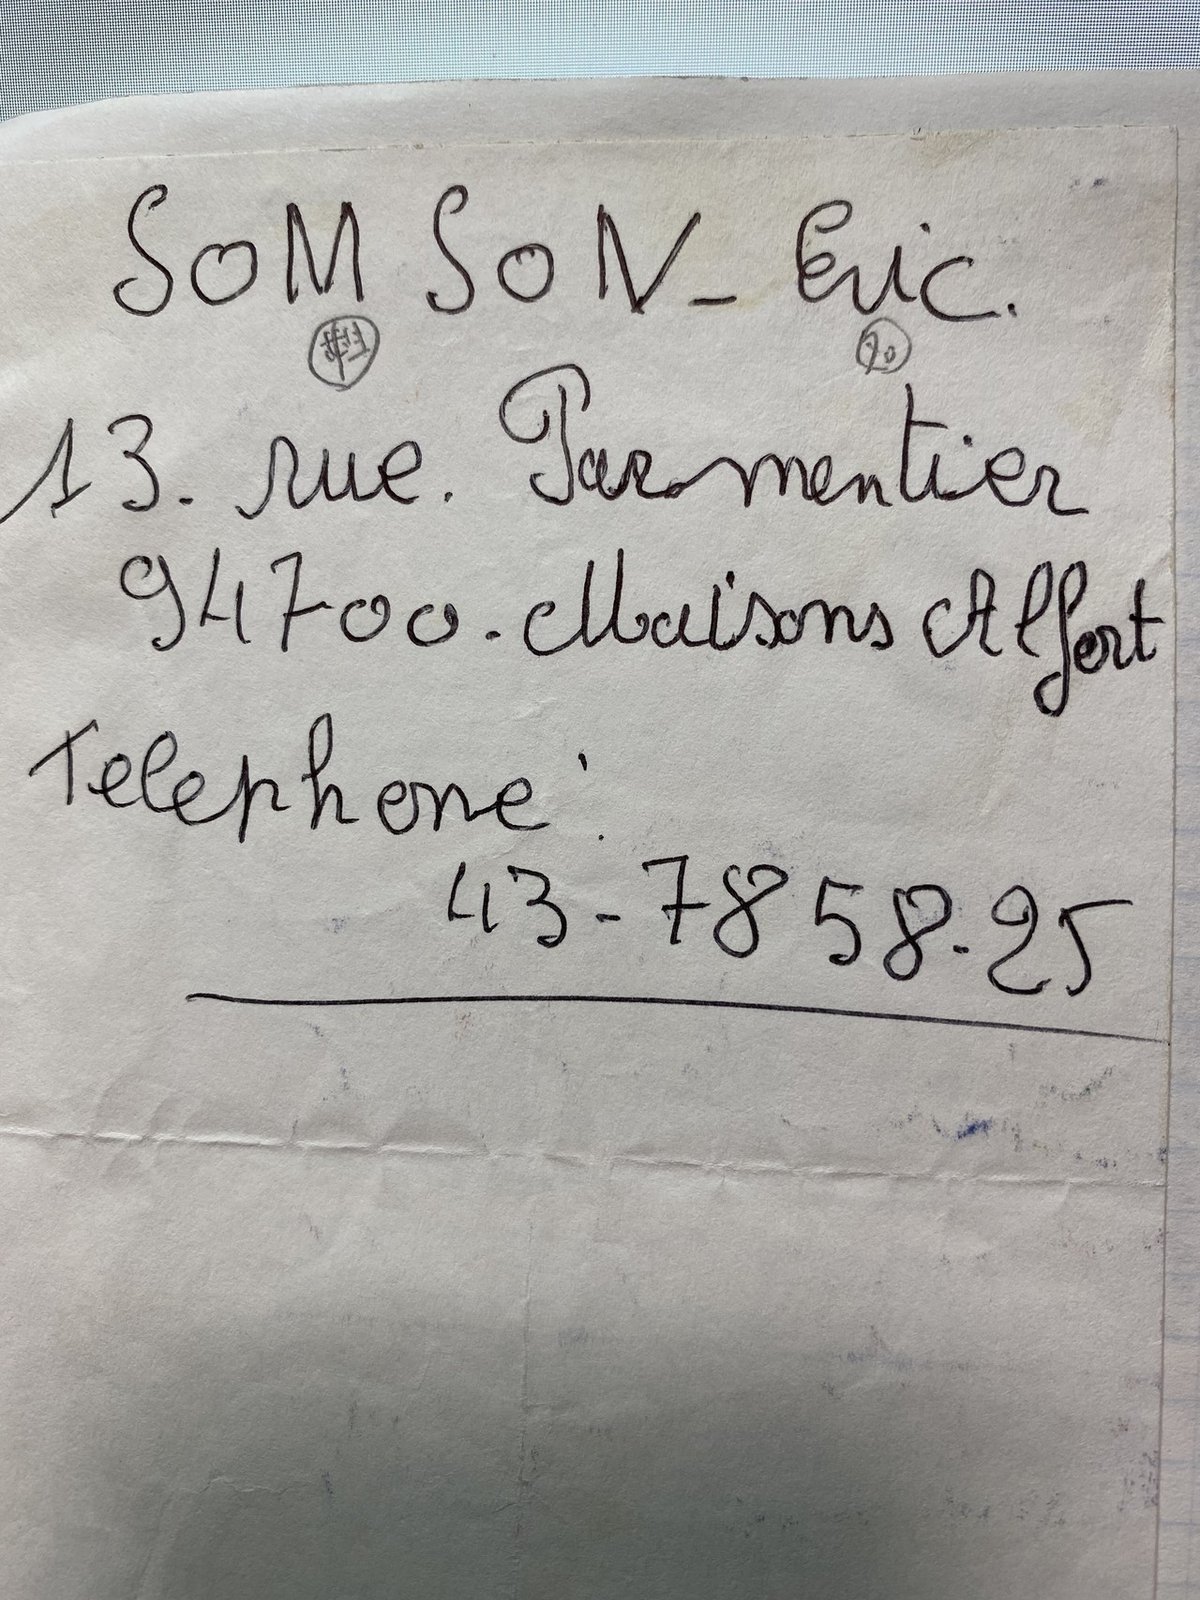 SOMSON - Eric.
70
13. rue. Parmentier
94700. Maisons Alfort
Telephone:
43-78 58.25